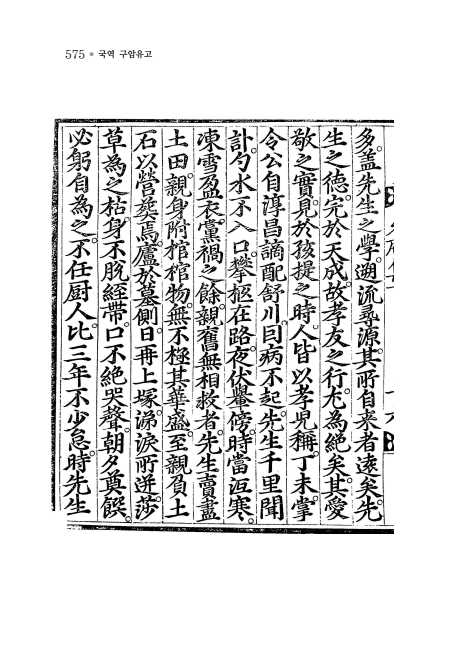 575 ● 국역 구암유고
多。盖先生之學。遡流尋源。其所自来者遠矣。先
生之德。完於天成。故孝友之行。尤為絶矣。其愛
敬之實。見於孩提之時。人皆以孝児稱。丁未掌
令公自淳昌謫配舒川。因病不起。先生千里聞
訃。勺水不入口。攀柩在路。夜伏轝傍。時當沍寒。
凍雪盈衣。黨禍之餘。親舊無相救者。先生賣盡
土田。親身附棺槨物。無不極其華盛。至親負土
石以營葬焉。廬於墓側。日再上塚。涕淚所迸。莎
草為之枯。身不脫絰帶。口不絶哭聲。朝夕奠饌。
必躬自為之。不任厨人。比三年不少怠。時先生